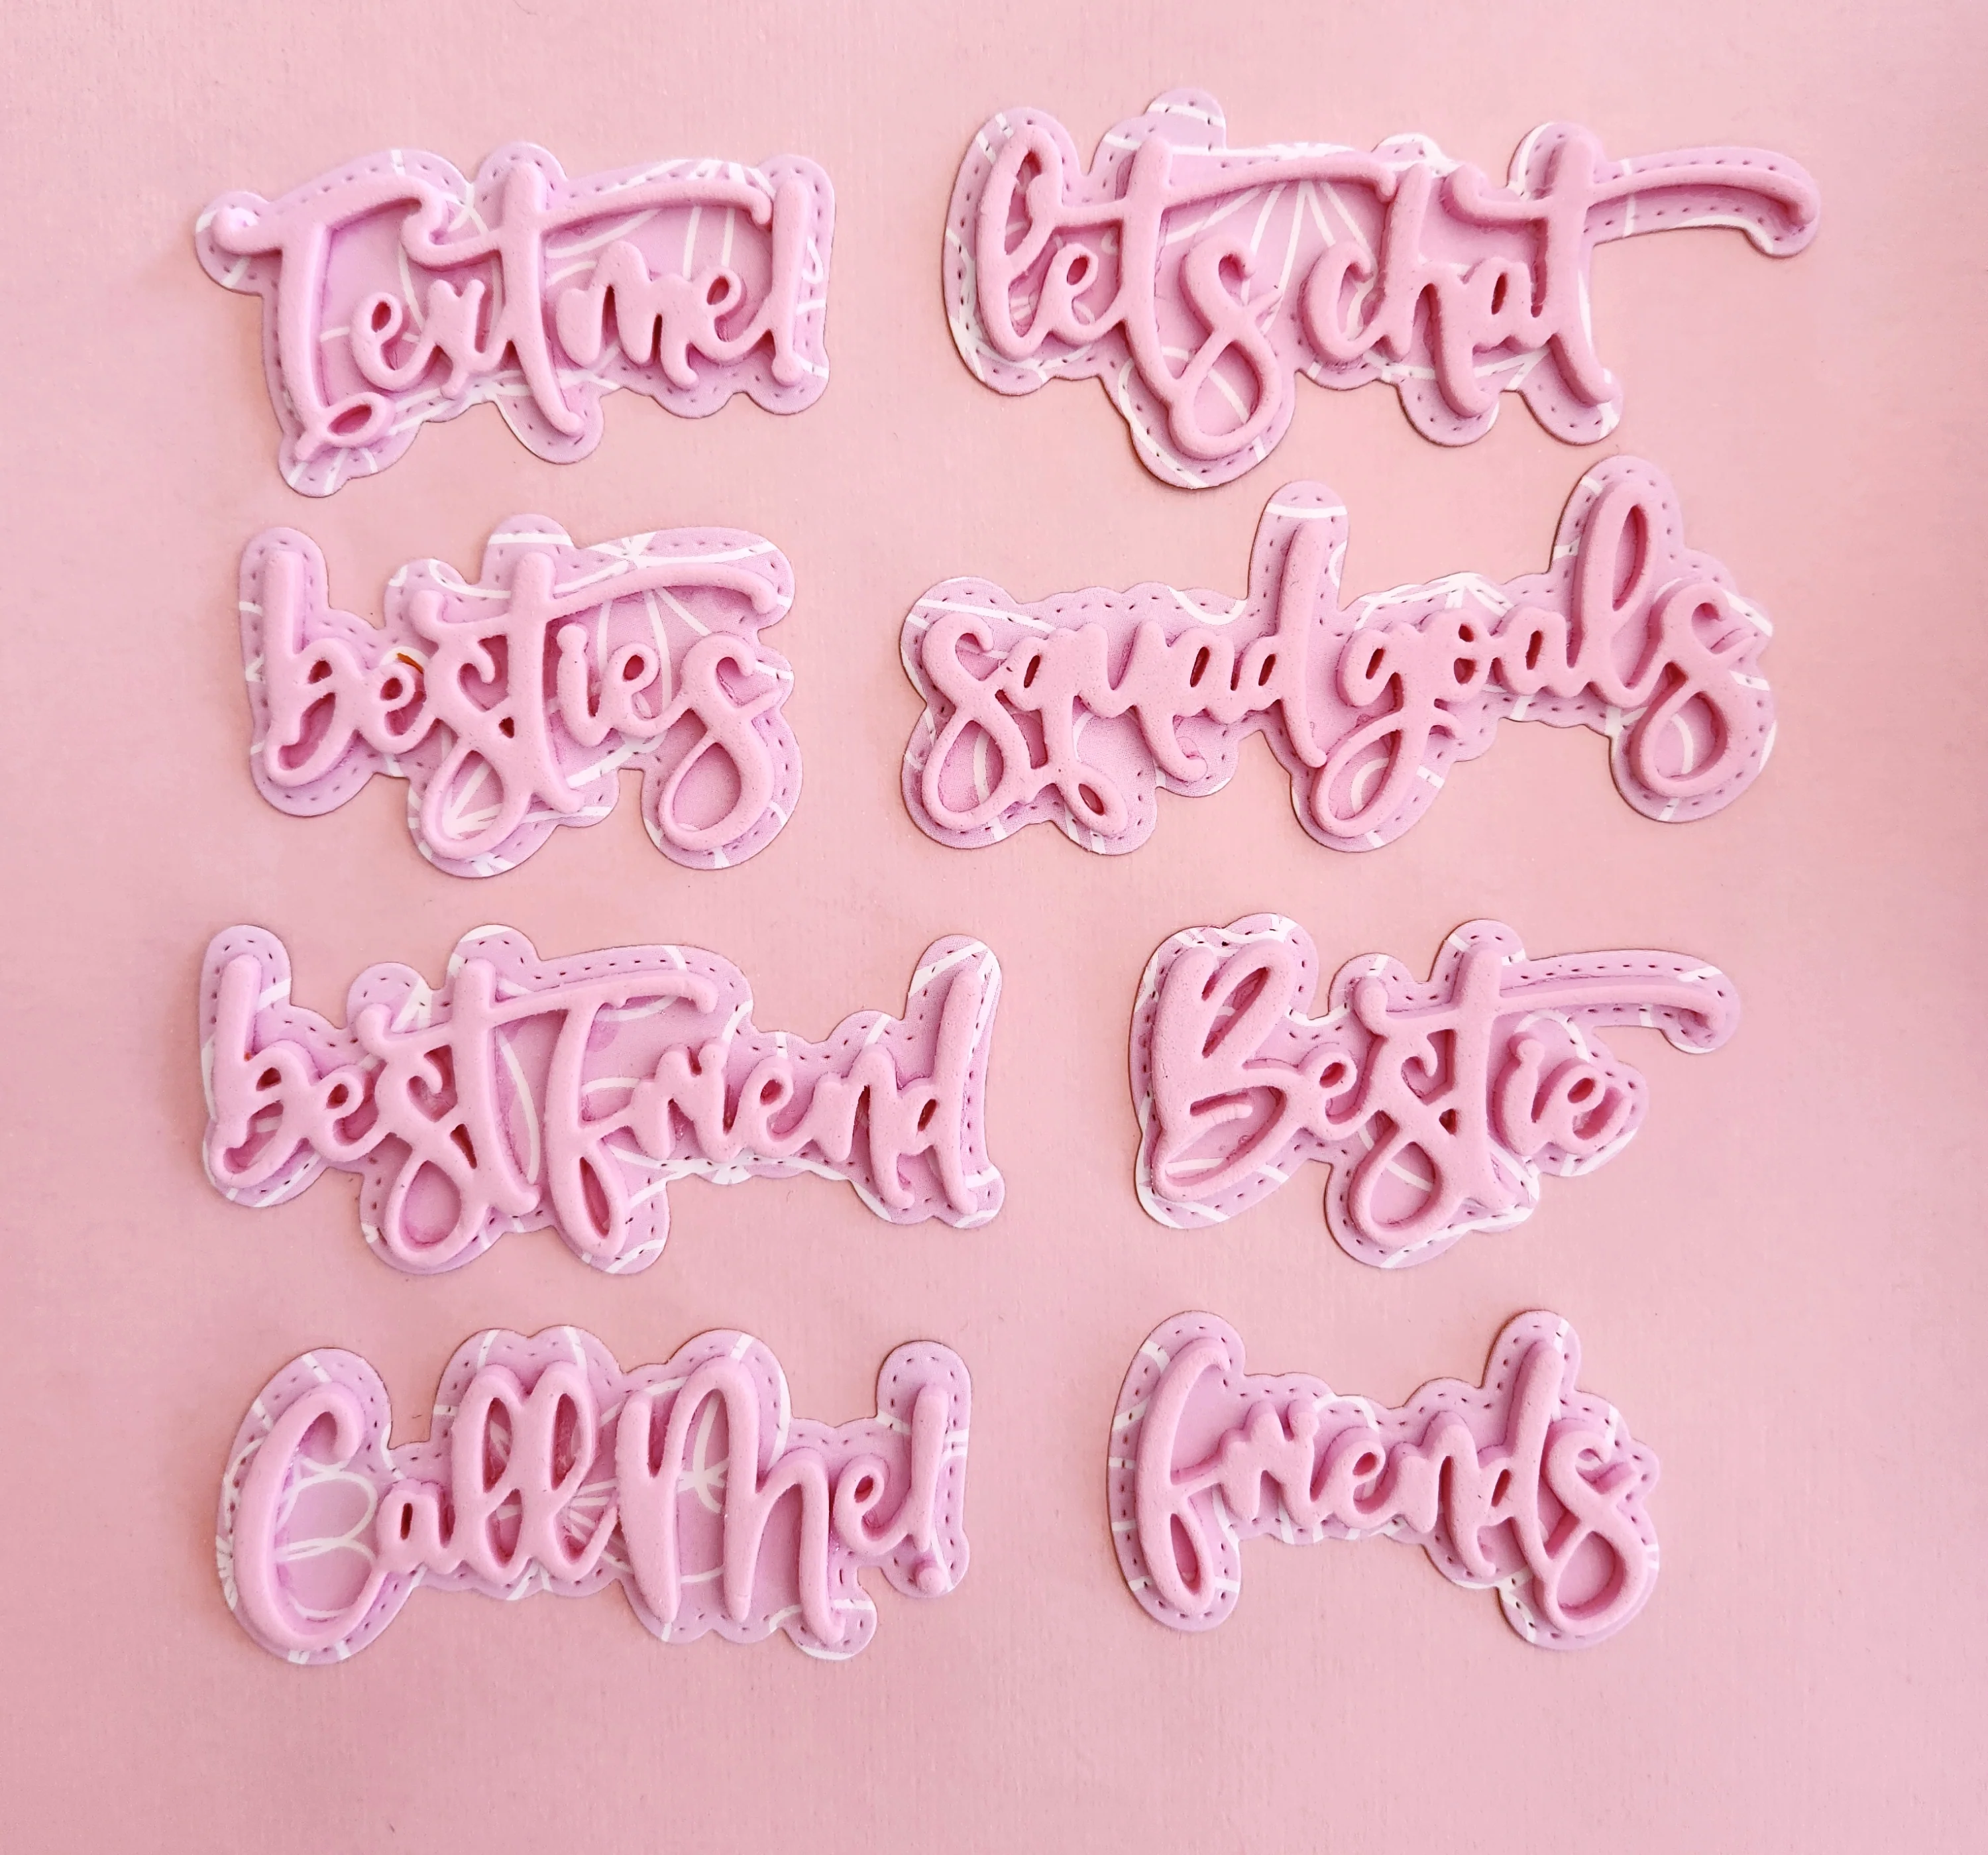 Text me!
lets chat
besties
squad goals
best friend
Bestie
Call Me!
friends